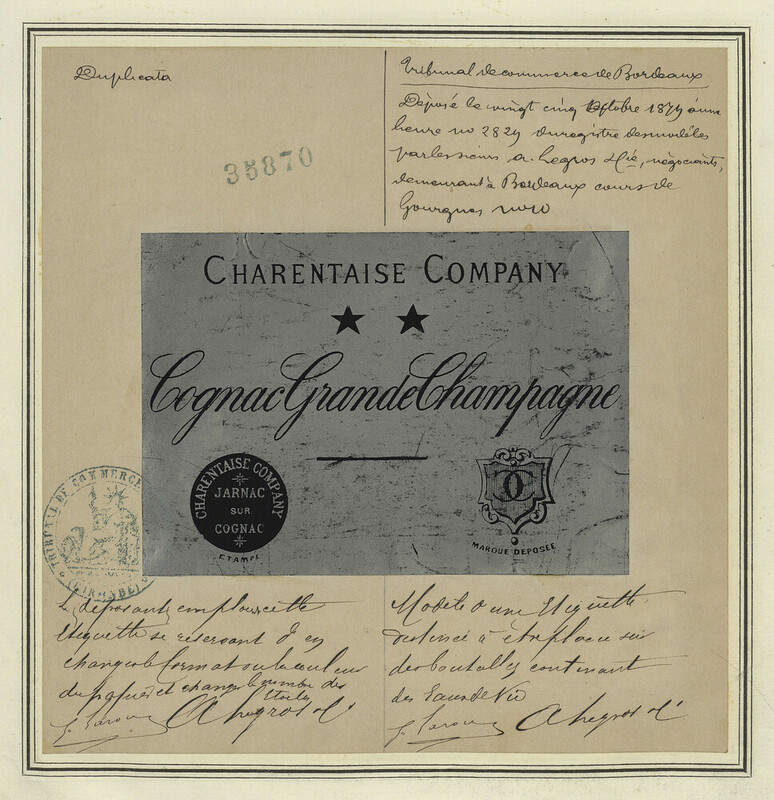 Duplicata
35870
Tribunal de commerce de Bordeaux
Déposé le vingt cinq Octobre 1879 à une
heure no 2829 du registre des modèles
par les sieurs A. Legros & Cie, négociants,
demeurant à Bordeaux cours de
Gourgues
CHARENTAISE COMPANY
★ ★
Cognac Grande Champagne
CHARENTAISE COMPANY
JARNAC
SUR
COGNAC
ETAMPE
MARQUE DEPOSEE
TRIBUNAL DE COMMERCE
(GIRONDE)
Le déposant emploie cette
étiquette se réservant d'en
changer le format ou la couleur
du papier et changer le nombre des
étoiles
A Legros & Cie
Modèle d'une Etiquette
destinée à être placée sur
des bouteilles contenant
des Eaux de Vie
A Legros & Cie